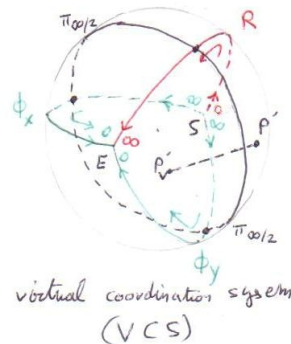 π∞/2
R
∞
ϕx
∞
S
P′
E
∞
P′
π∞/2
ϕy
virtual coordination sysem
(VCS)